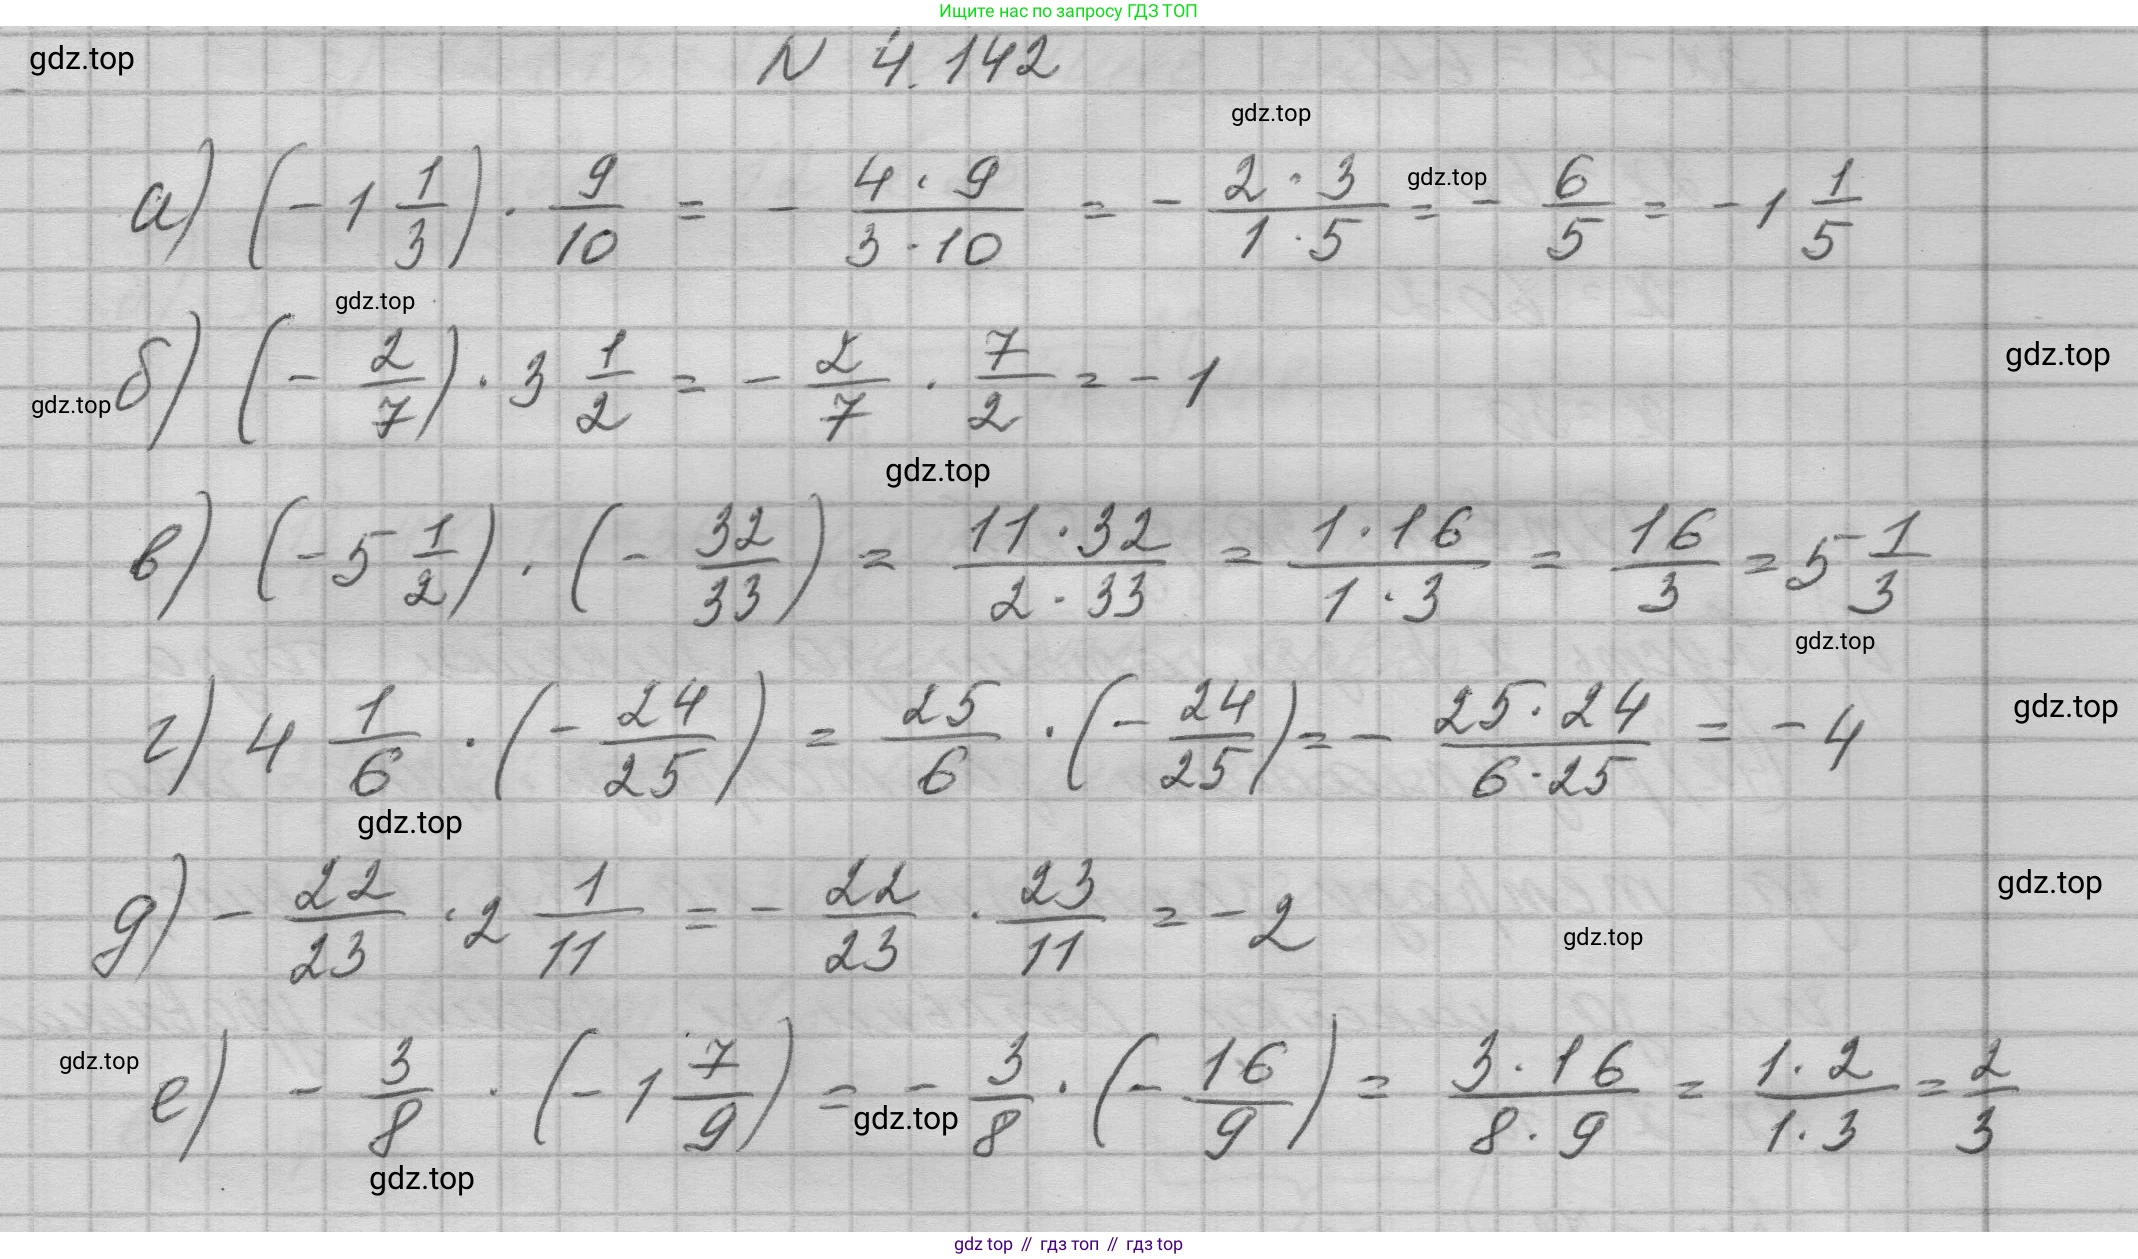 Ищите нас по запросу ГДЗ ТОП
gdz.top
N 4.142
gdz.top
а) (-1 1/3) · 9/10 = - 4·9/3·10 = - 2·3/1·5 = - 6/5 = -1 1/5
gdz.top
gdz.top
б) (- 2/7) · 3 1/2 = - 2/7 · 7/2 = -1
gdz.top
gdz.top
gdz.top
в) (-5 1/2) · (- 32/33) = 11·32/2·33 = 1·16/1·3 = 16/3 = 5 1/3
gdz.top
г) 4 1/6 · (- 24/25) = 25/6 · (- 24/25) = - 25·24/6·25 = -4
gdz.top
gdz.top
д) - 22/23 · 2 1/11 = - 22/23 · 23/11 = -2
gdz.top
gdz.top
gdz.top
е) - 3/8 · (-1 7/9) = - 3/8 · (- 16/9) = 3·16/8·9 = 1·2/1·3 = 2/3
gdz.top
gdz.top
gdz top // гдз топ // гдз top